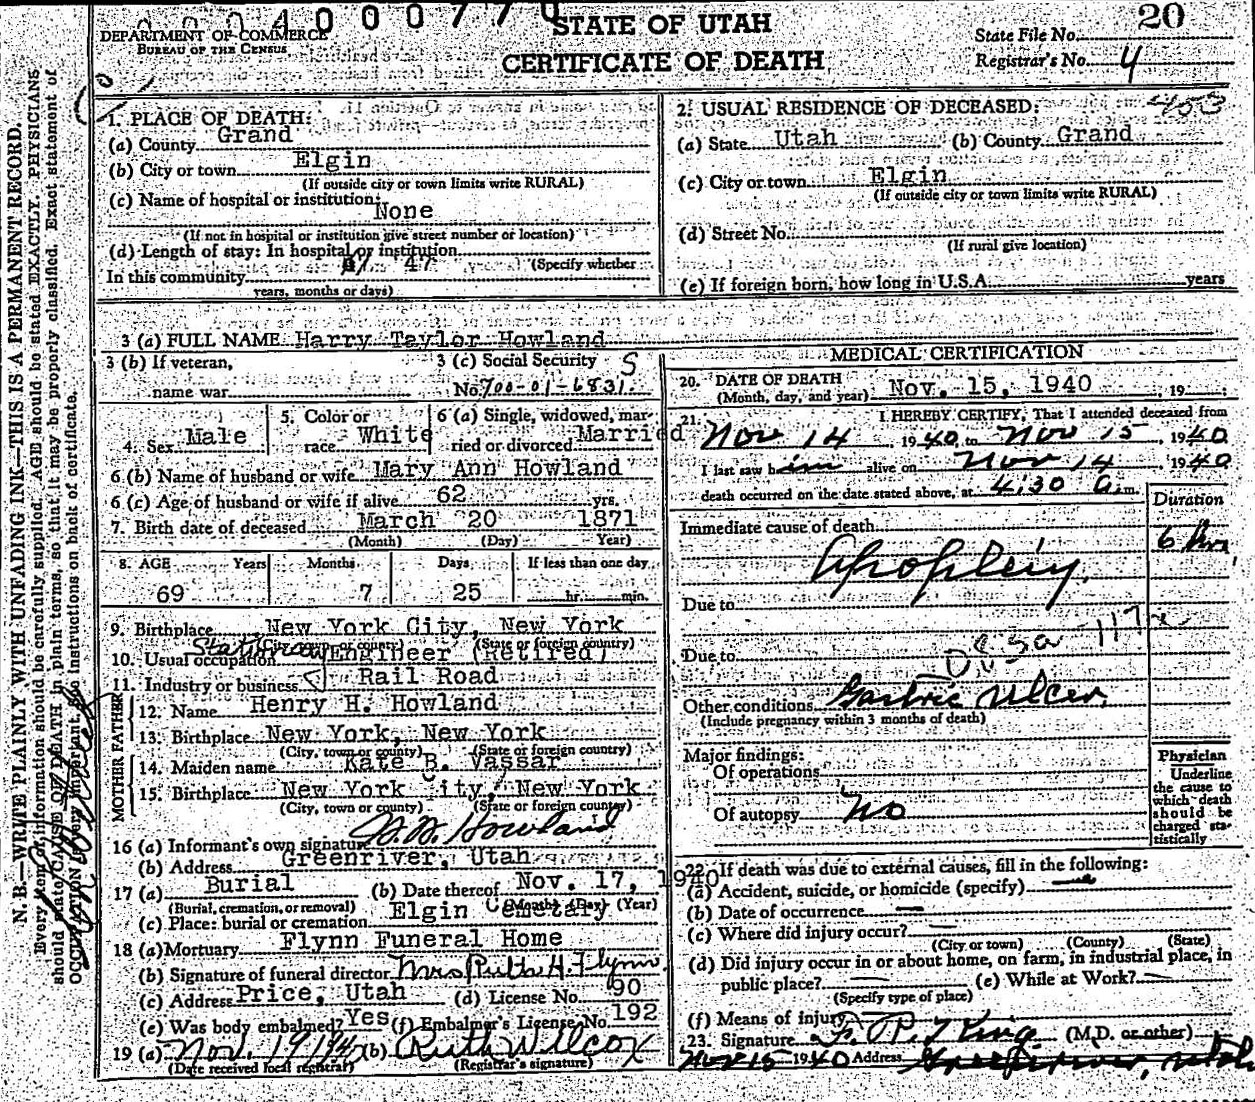 0004000770
STATE OF UTAH
CERTIFICATE OF DEATH
DEPARTMENT OF COMMERCE
BUREAU OF THE CENSUS
State File No. 20
Registrar's No. 4
453
N. B.—WRITE PLAINLY WITH UNFADING INK—THIS IS A PERMANENT RECORD.
Every item of information should be carefully supplied. AGE should be stated EXACTLY. PHYSICIANS
should state CAUSE OF DEATH in plain terms, so that it may be properly classified. Exact statement of
OCCUPATION is very important. See instructions on back of certificate.
1. PLACE OF DEATH:
(a) County Grand
(b) City or town Elgin
(If outside city or town limits write RURAL)
(c) Name of hospital or institution:
None
(If not in hospital or institution give street number or location)
(d) Length of stay: In hospital or institution
(Specify whether
In this community 47
years, months or days)
2. USUAL RESIDENCE OF DECEASED:
(a) State Utah (b) County Grand
(c) City or town Elgin
(If outside city or town limits write RURAL)
(d) Street No.
(If rural give location)
(e) If foreign born, how long in U.S.A. years
3 (a) FULL NAME Harry Taylor Howland
3 (b) If veteran,
name war
3 (c) Social Security S
No. 700-01-6831
4. Sex Male
5. Color or
race White
6 (a) Single, widowed, mar-
ried or divorced Married
6 (b) Name of husband or wife Mary Ann Howland
6 (c) Age of husband or wife if alive 62 yrs.
7. Birth date of deceased March 20 1871
(Month) (Day) Year)
8. AGE Years Months Days If less than one day
69 7 25 hr. min.
9. Birthplace New York City, New York
(City, town or county) (State or foreign country)
10. Usual occupation Engineer (Retired)
11. Industry or business Rail Road
FATHER
12. Name Henry H. Howland
13. Birthplace New York, New York
(City, town or county) (State or foreign country)
MOTHER
14. Maiden name Kate B. Vassar
15. Birthplace New York City, New York
(City, town or county) (State or foreign country)
16 (a) Informant's own signature Howland
(b) Address Greenriver, Utah
17 (a) Burial (b) Date thereof Nov. 17, 1940
(Burial, cremation, or removal) (Month) (Day) (Year)
(c) Place: burial or cremation Elgin Cemetary
18 (a) Mortuary Flynn Funeral Home
(b) Signature of funeral director Mrs. H. Flynn
(c) Address Price, Utah (d) License No. 90
(e) Was body embalmed? Yes (f) Embalmer's License No. 192
19 (a) Nov. 19 1940 (b) Ruth Wilcox
(Date received local registrar) (Registrar's signature)
MEDICAL CERTIFICATION
20. DATE OF DEATH Nov. 15, 1940, 19
(Month, day, and year)
21. I HEREBY CERTIFY, That I attended deceased from
Nov 14, 1940, to Nov 15, 1940
I last saw him alive on Nov 14 1940
death occurred on the date stated above, at 4:30 a.m.
Duration
Immediate cause of death 6 hrs.
Apoplexy.
Due to
Due to
Other conditions Gastric Ulcer.
(Include pregnancy within 3 months of death)
Major findings:
Of operations
Of autopsy No
Physician
Underline
the cause to
which death
should be
charged sta-
tistically
22. If death was due to external causes, fill in the following:
(a) Accident, suicide, or homicide (specify)
(b) Date of occurrence
(c) Where did injury occur?
(City or town) (County) (State)
(d) Did injury occur in or about home, on farm, in industrial place, in
public place? (e) While at Work?
(Specify type of place)
(f) Means of injury
23. Signature King (M.D. or other)
Nov 15 1940 Address Greenriver, Utah